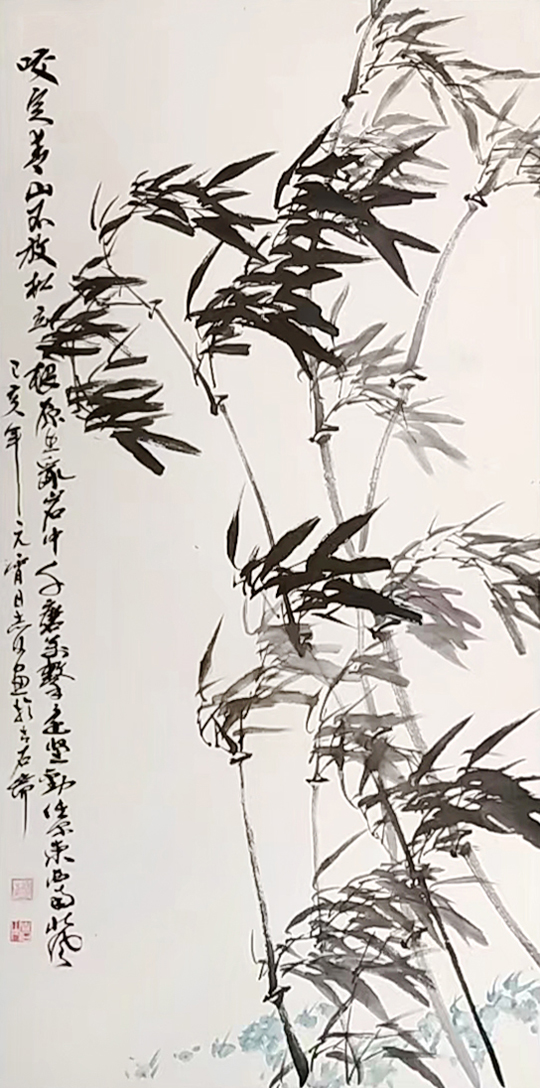 咬定青山不放松立根原在乱岩中千磨万击还坚劲任尔东西南北风
己亥年元宵日